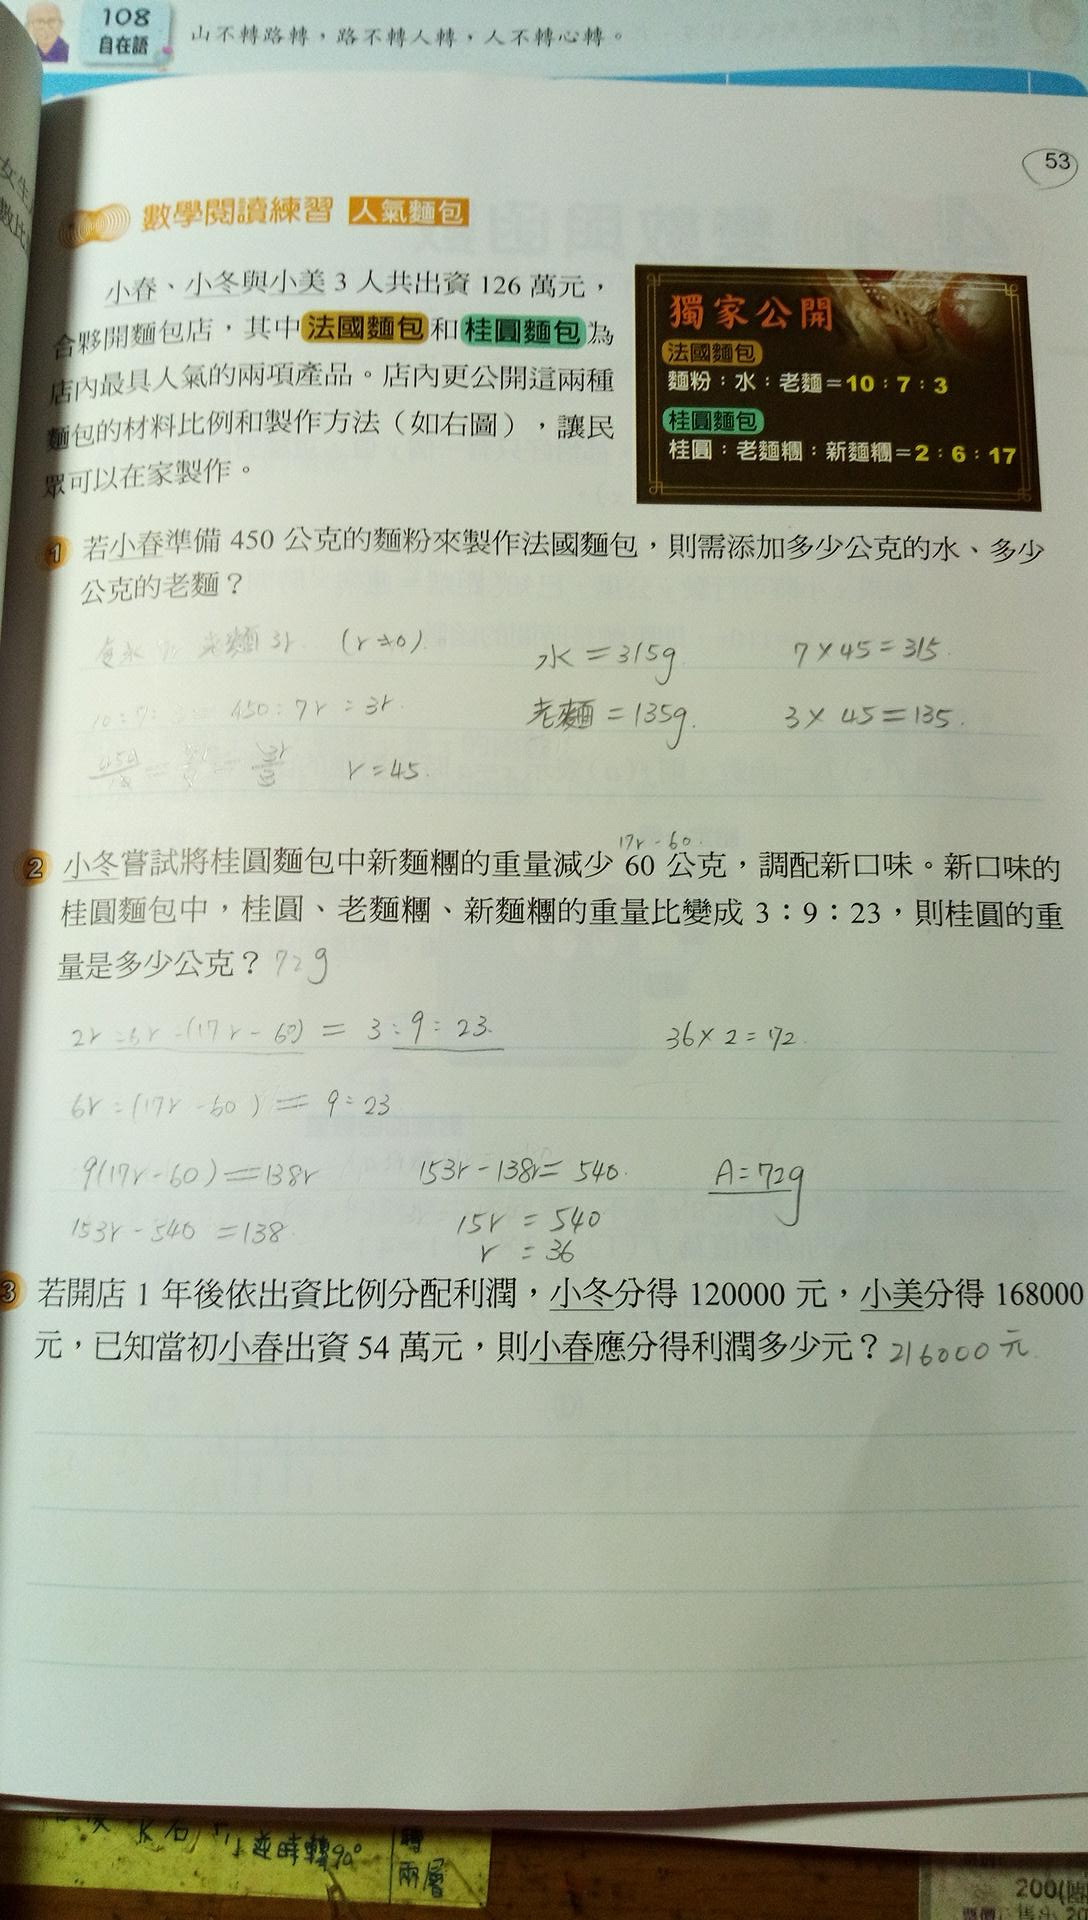 108
自在語
山不轉路轉，路不轉人轉，人不轉心轉。
53
女生
數比
數學閱讀練習 人氣麵包
小春、小冬與小美 3 人共出資 126 萬元，
合夥開麵包店，其中 法國麵包 和 桂圓麵包 為
店內最具人氣的兩項產品。店內更公開這兩種
麵包的材料比例和製作方法（如右圖），讓民
眾可以在家製作。
獨家公開
法國麵包
麵粉：水：老麵＝10：7：3
桂圓麵包
桂圓：老麵糰：新麵糰＝2：6：17
1 若小春準備 450 公克的麵粉來製作法國麵包，則需添加多少公克的水、多少
公克的老麵？
老麵 3r (r≠0) 水 = 315g 7×45=315
450：7r：3r 老麵 = 135g 3×45=135
r=45
17r-60
2 小冬嘗試將桂圓麵包中新麵糰的重量減少 60 公克，調配新口味。新口味的
桂圓麵包中，桂圓、老麵糰、新麵糰的重量比變成 3：9：23，則桂圓的重
量是多少公克？72g
2r：6r：(17r-60) = 3：9：23 36×2=72
6r：(17r-60) = 9：23
9(17r-60) = 138r 153r-138r=540 A=72g
153r-540=138 15r=540
r=36
3 若開店 1 年後依出資比例分配利潤，小冬分得 120000 元，小美分得 168000
元，已知當初小春出資 54 萬元，則小春應分得利潤多少元？216000元
逆時轉90°
轉
兩層
200